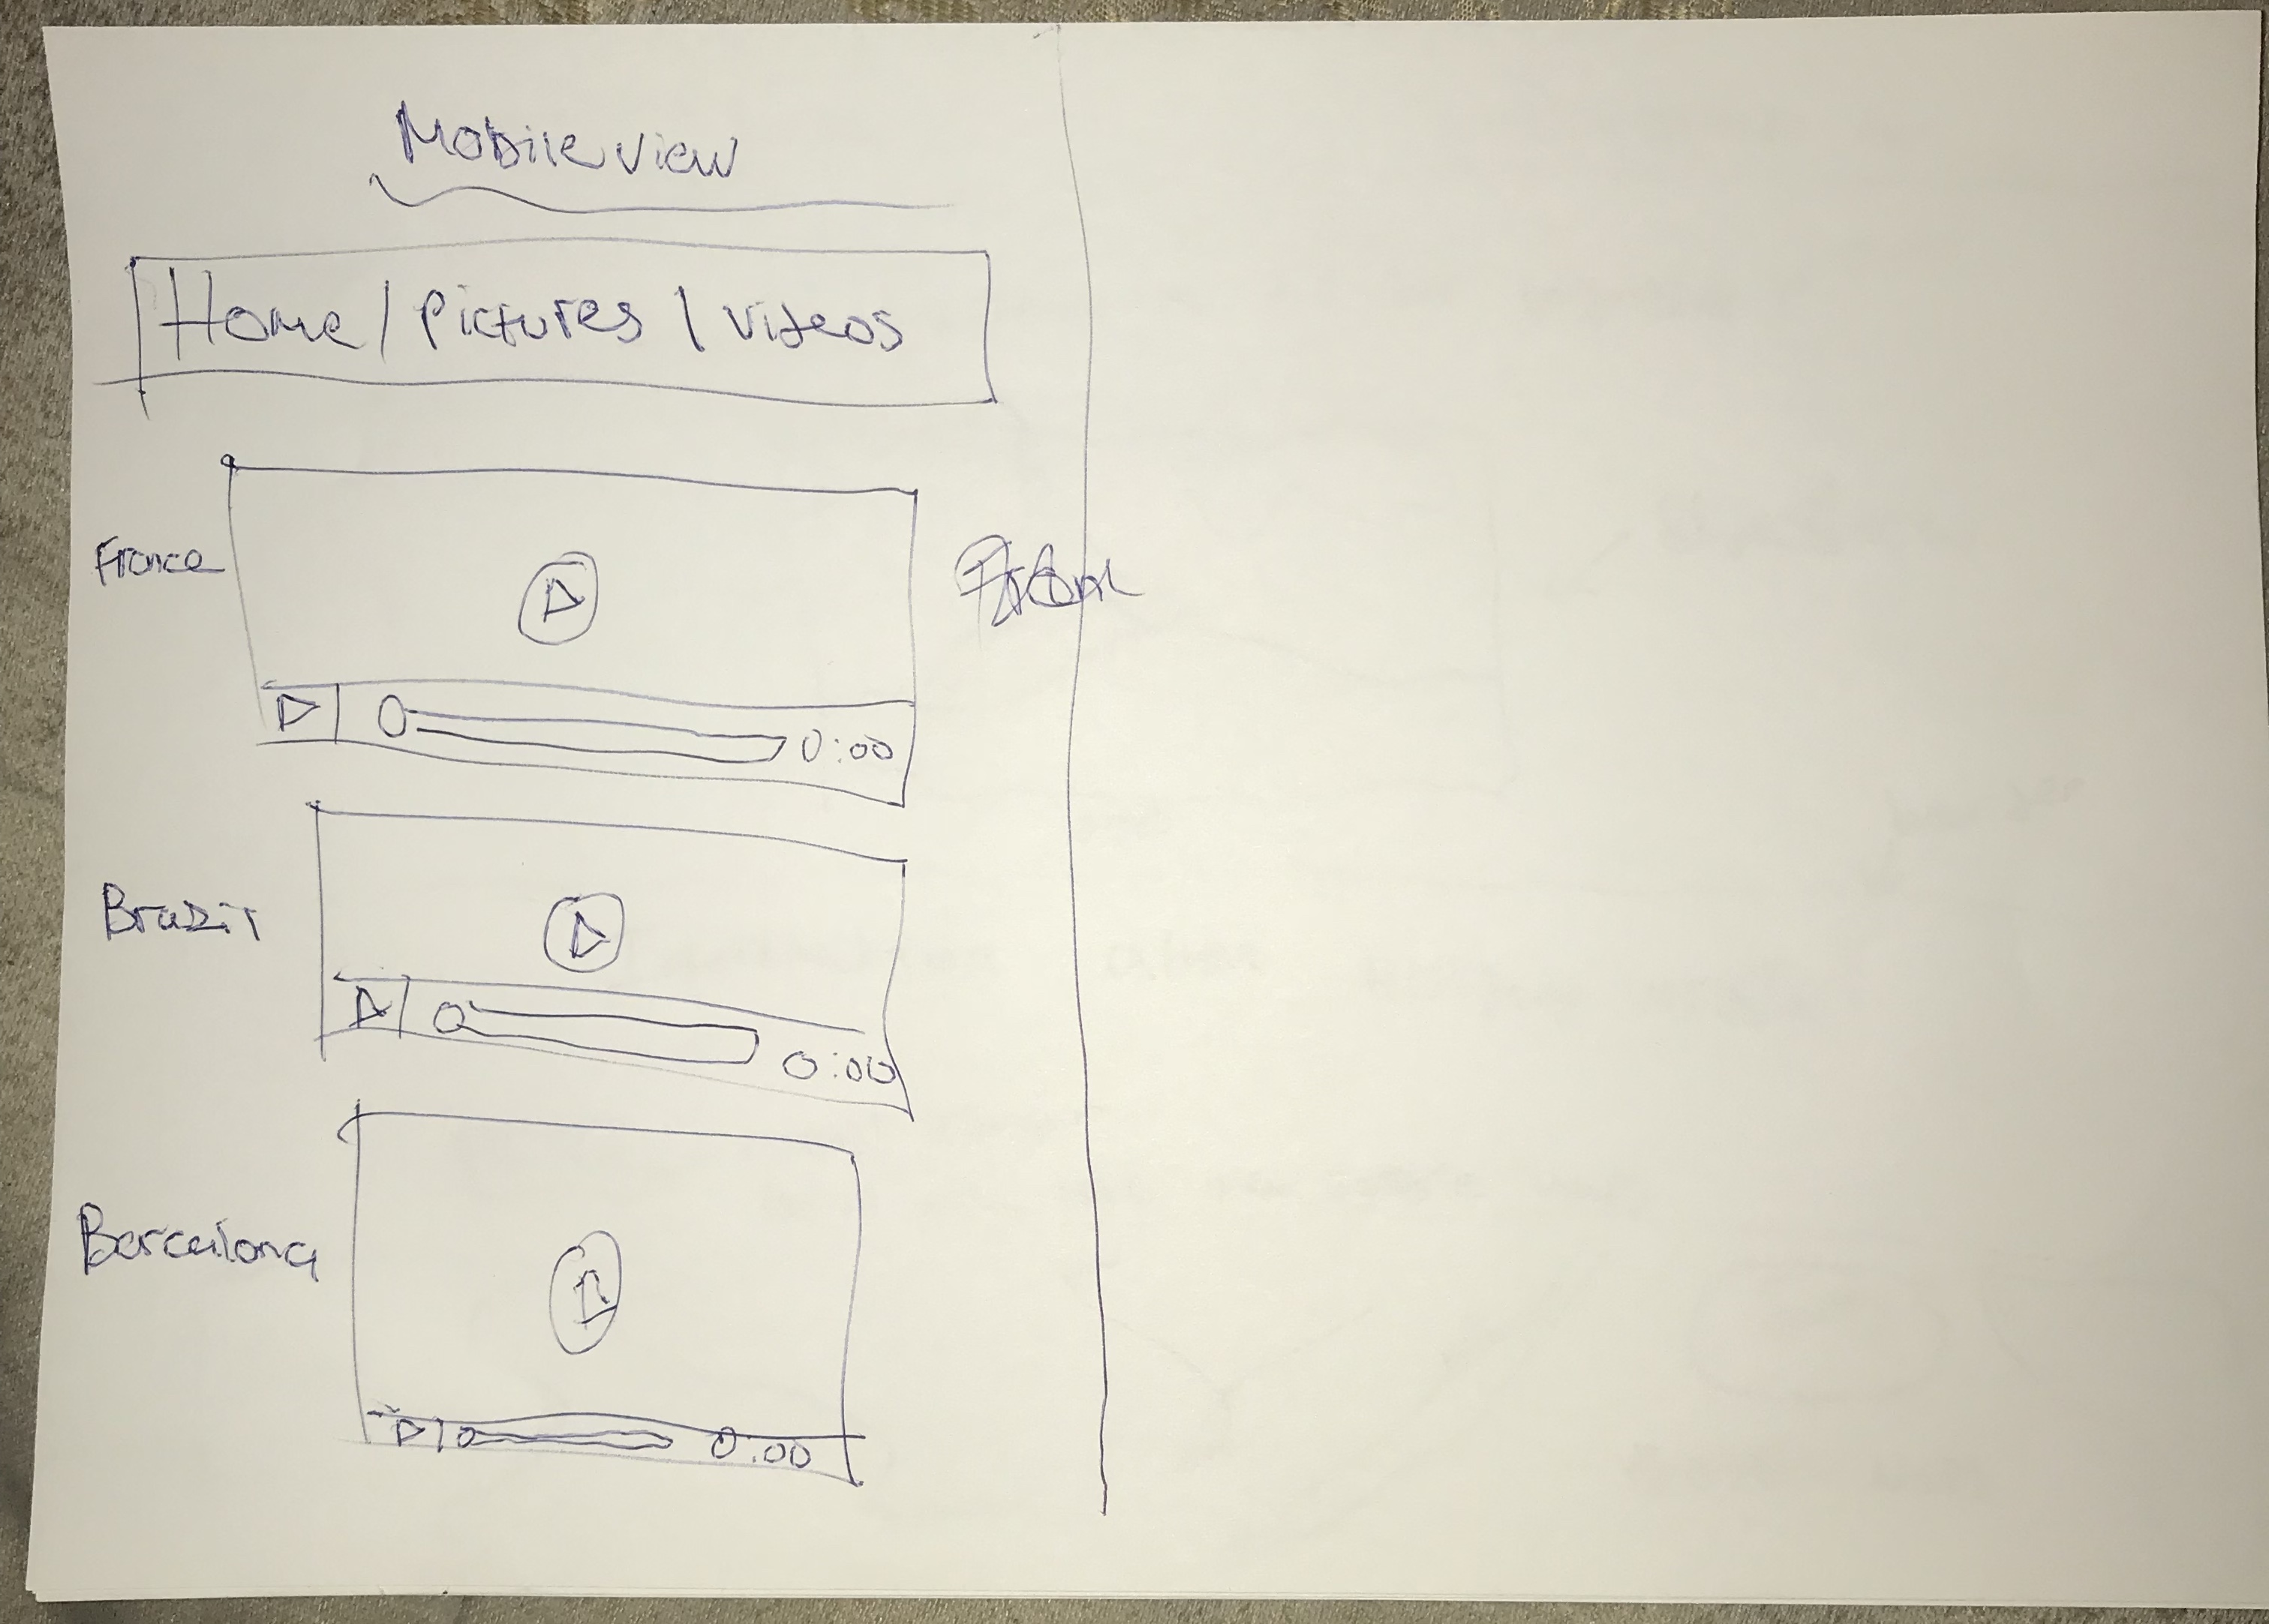 Mobile view
Home / Pictures / Videos
France
0:00
Brazil
0:00
Barcelona
0:00